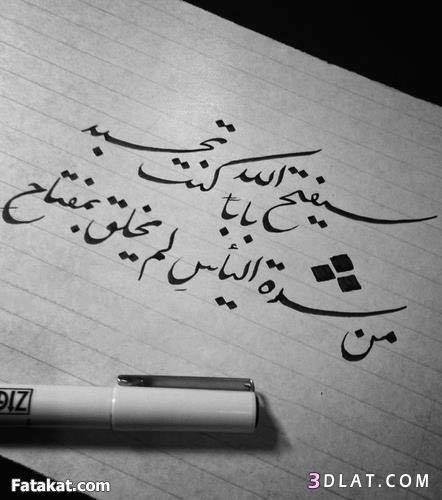 سيفتح الله بابًا كنت تحسبه
من شدة اليأسِ لم يخلق بمفتاح
ZIG
Fatakat.com
3DLAT.COM